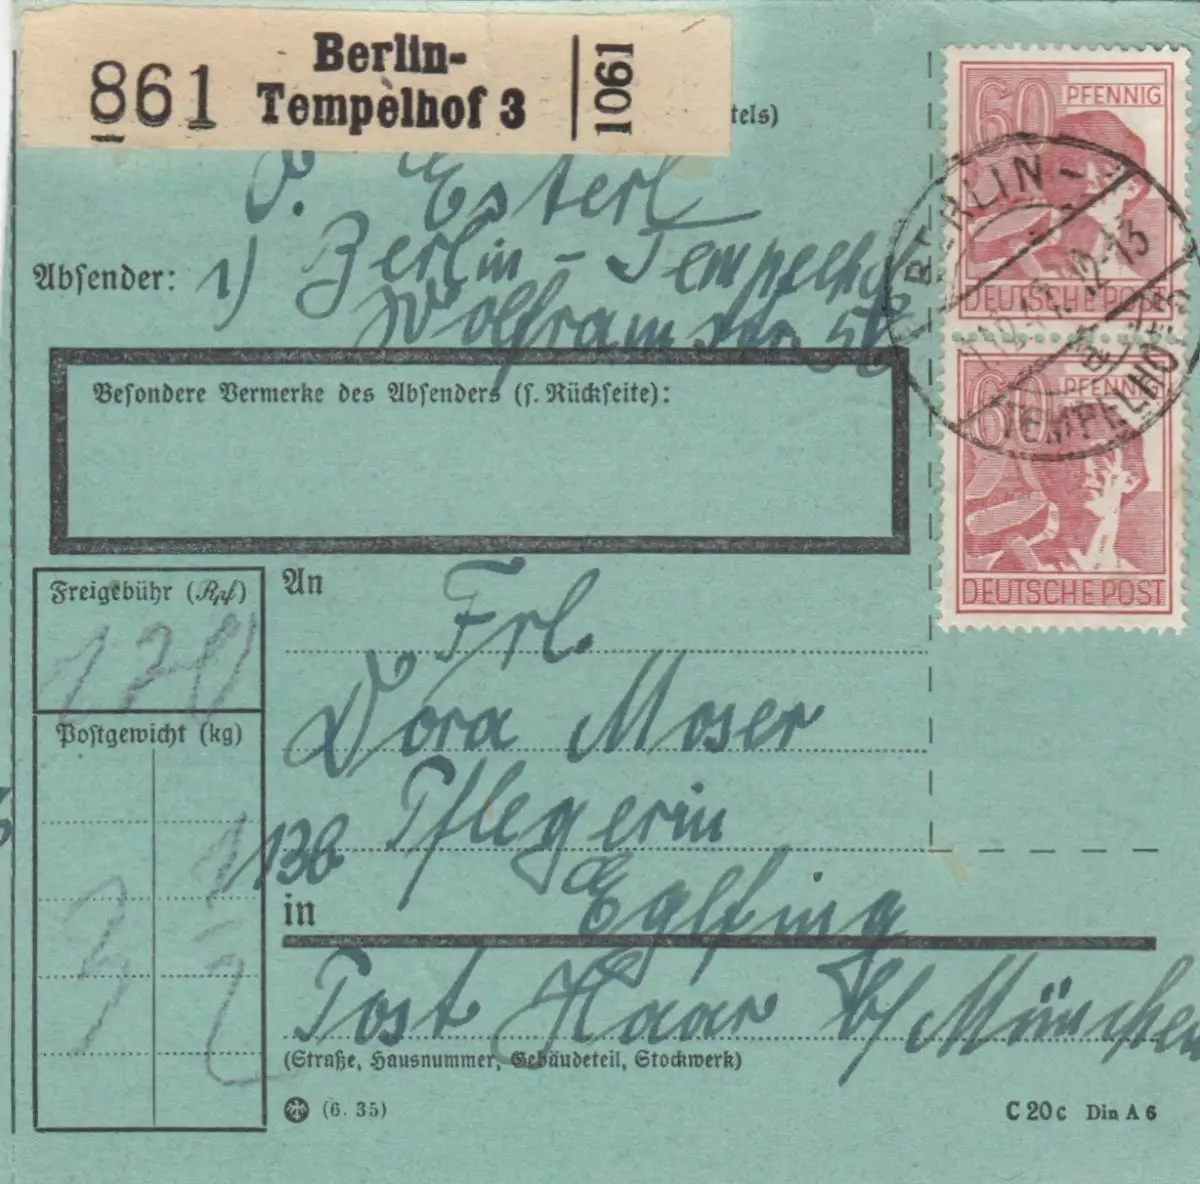 861
Berlin-
Tempelhof 3
1061
tels)
60 PFENNIG
DEUTSCHE POST
BERLIN-
12-13
TEMPELHOF
60 PFENNIG
DEUTSCHE POST
Esterl
Absender: 1) Berlin-Tempelhof
Wolframstr.
Besondere Vermerke des Absenders (s. Rückseite):
Freigebühr (Rpf)
Postgewicht (kg)
3 1/2
An Frl.
Dora Moser
13b Pflegerin
in Eglfing
Post Haar b/München
(Straße, Hausnummer, Gebäudeteil, Stockwerk)
(6. 35)
C 20c Din A 6